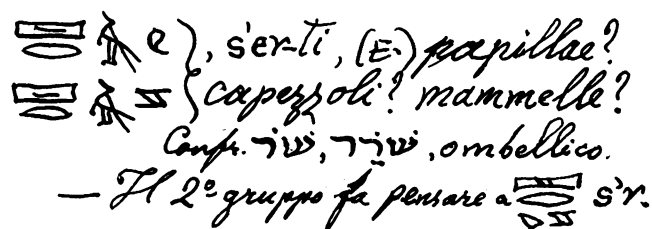 , s'er-ti, (E.) papillae?
capezzoli? mammelle?
Confr. שֹׁר, שֹׁרֵר, ombellico.
— Il 2º gruppo fa pensare a s'r.